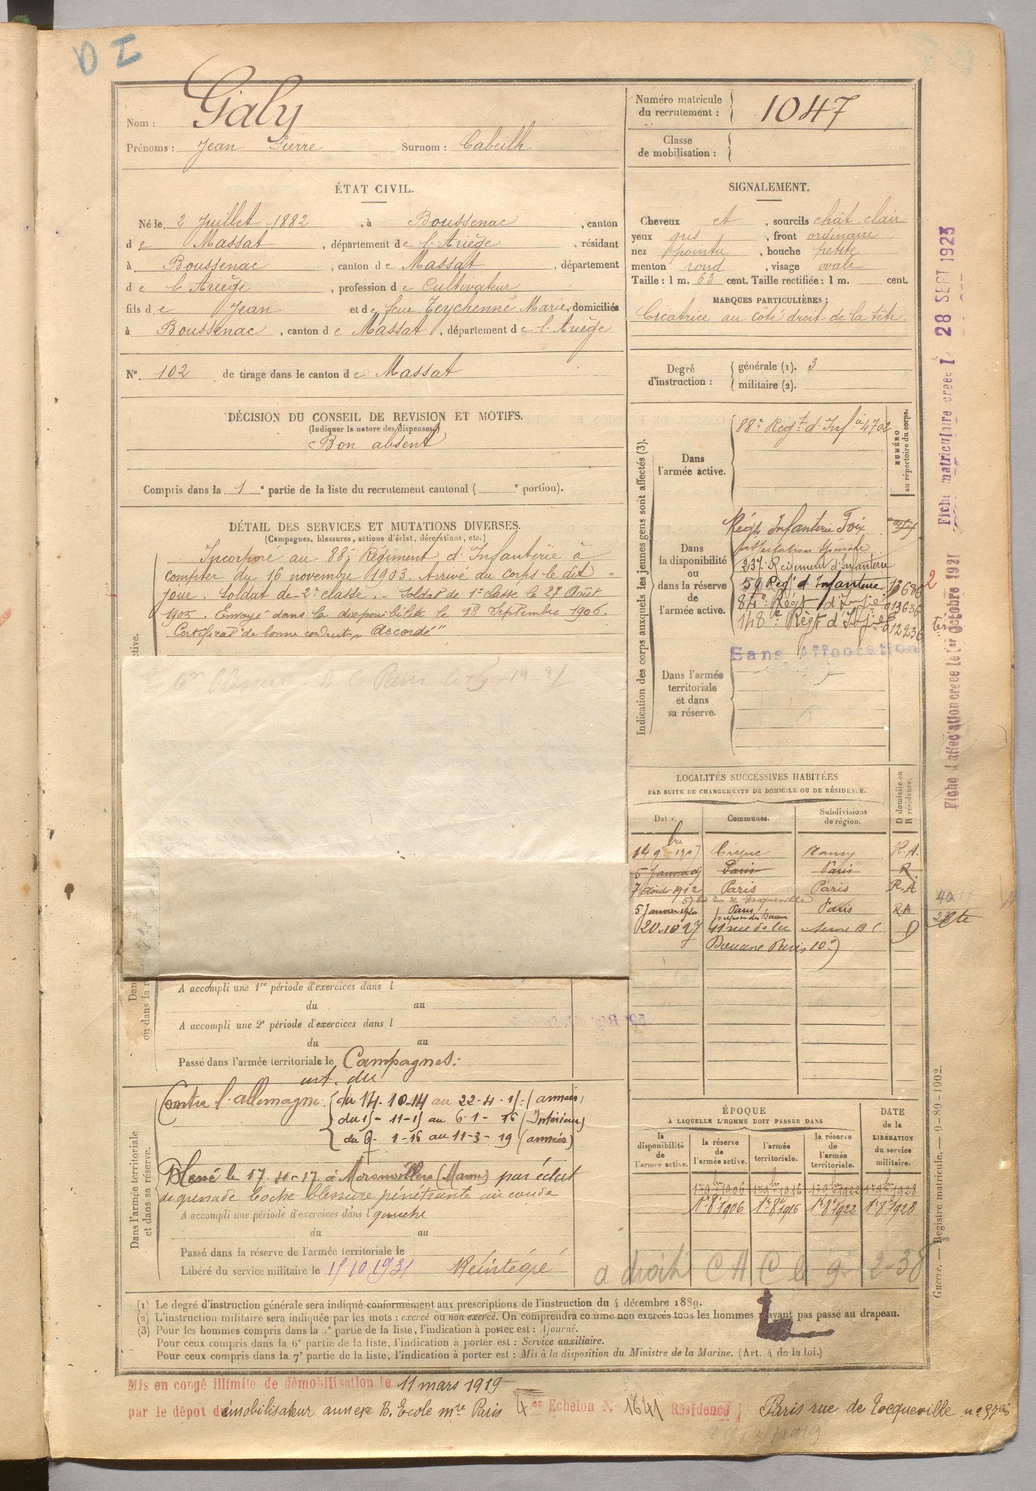 DI
Nom : Galy
Prénoms : Jean Pierre Surnom : Cabeilh
ÉTAT CIVIL.
Né le 2 Juillet 1882, à Boussenac, canton
de Massat, département de l'Ariège, résidant
à Boussenac, canton de Massat, département
de l'Ariège, profession de Cultivateur
fils de Jean et de feue Teychenné Marie, domiciliés
à Boussenac, canton de Massat, département de l'Ariège
N° 102 de tirage dans le canton de Massat
DÉCISION DU CONSEIL DE REVISION ET MOTIFS.
(Indiquer la nature des dispenses)
Bon absent
Compris dans la 1e partie de la liste du recrutement cantonal ( e portion).
DÉTAIL DES SERVICES ET MUTATIONS DIVERSES.
(Campagnes, blessures, actions d'éclat, décorations, etc.)
Incorporé au 88e Régiment d'Infanterie à
compter du 16 novembre 1903. Arrivé du corps le dit
jour. Soldat de 2e classe. - Soldat de 1e classe le 27 Août
1905. Envoyé dans la disponibilité le 18 Septembre 1906.
Certificat de bonne conduite "Accordé"
A accompli une 1re période d'exercices dans l
du au
A accompli une 2e période d'exercices dans l
du au
Passé dans l'armée territoriale le Campagnes :
Contre l'allemagne : du 14-10-14 au 22-4-15 (armées)
au 6-1-16 (Intérieur)
1-16 au 11-3-19 (armées)
Blessé le 17-10-17 à (Marne) par éclat
de grenade boche blessure pénétrante au coude
A accompli une période d'exercices dans gauche
du au
Passé dans la réserve de l'armée territoriale le
Libéré du service militaire le 15 10 1931 Réintégré
Dans l'armée territoriale
et dans sa réserve.
Numéro matricule
du recrutement : 1047
Classe
de mobilisation :
SIGNALEMENT.
Cheveux et, sourcils chât. clair
yeux gris, front ordinaire
nez pointu, bouche petite
menton rond, visage ovale
Taille : 1 m. 63 cent. Taille rectifiée : 1 m. cent.
MARQUES PARTICULIÈRES :
Cicatrice au côté droit de la tête
Degré
d'instruction :
générale (1). 3
militaire (2).
Indication des corps auxquels les jeunes gens sont affectés (3).
NUMÉRO
au répertoire du corps.
Dans
l'armée active.
88e Régt d'Inf à 4702
Dans
la disponibilité
ou
dans la réserve
de
l'armée active.
Régt Infanterie Foix
Régiment d'Infanterie
59 Régt d'Infanterie
84e Régt d'Infie
148e Régt d'Infie
Sans Affectation
Dans l'armée
territoriale
et dans
sa réserve.
LOCALITÉS SUCCESSIVES HABITÉES
PAR SUITE DE CHANGEMENTS DE DOMICILE OU DE RÉSIDENCE.
Dates. Communes. Subdivisions
de région. D domicile ou
R résidence.
14 9bre 1907 Nancy R.A.
5 Janvier 09 Paris Paris R
7 Août 1912 Paris Paris R.A
5 Janvier 1920 Paris Paris RA
20.10.27 41 rue de la D
Douane Paris 10e)
ÉPOQUE
À LAQUELLE L'HOMME DOIT PASSER DANS
DATE
DE LA
LIBÉRATION
du service
militaire.
la
disponibilité
de
l'armée active.
la réserve
de
l'armée active.
l'armée
territoriale.
la réserve
de
l'armée
territoriale.
1er 9bre 1906 1er 9bre 1916 1er 9bre 1922 1er 9bre 1928
1er 8bre 1906 1er 8bre 1916 1er 8bre 1922 1er 8bre 1928
a droit CAC le 9- 2-38
(1) Le degré d'instruction générale sera indiqué conformément aux prescriptions de l'instruction du 4 décembre 1889.
(2) L'instruction militaire sera indiquée par les mots : exercé ou non exercé. On comprendra comme non exercés tous les hommes n'ayant pas passé au drapeau.
(3) Pour les hommes compris dans la 5e partie de la liste, l'indication à porter est : Ajourné.
Pour ceux compris dans la 6e partie de la liste, l'indication à porter est : Service auxiliaire.
Pour ceux compris dans la 7e partie de la liste, l'indication à porter est : Mis à la disposition du Ministre de la Marine. (Art. 4 de la loi.)
Mis en congé illimité de démobilisation le 11 mars 1919
par le dépot démobilisateur annexe B. École mre Paris 4e Echelon N° 1641 Résidence : Paris rue de Tocqueville
Fiche matriculaire créée le 28 SEPT 1925
Fiche d'affectation créée le 1er Octobre 1921
Guerre. — Registre matricule. — 9-89-1902.